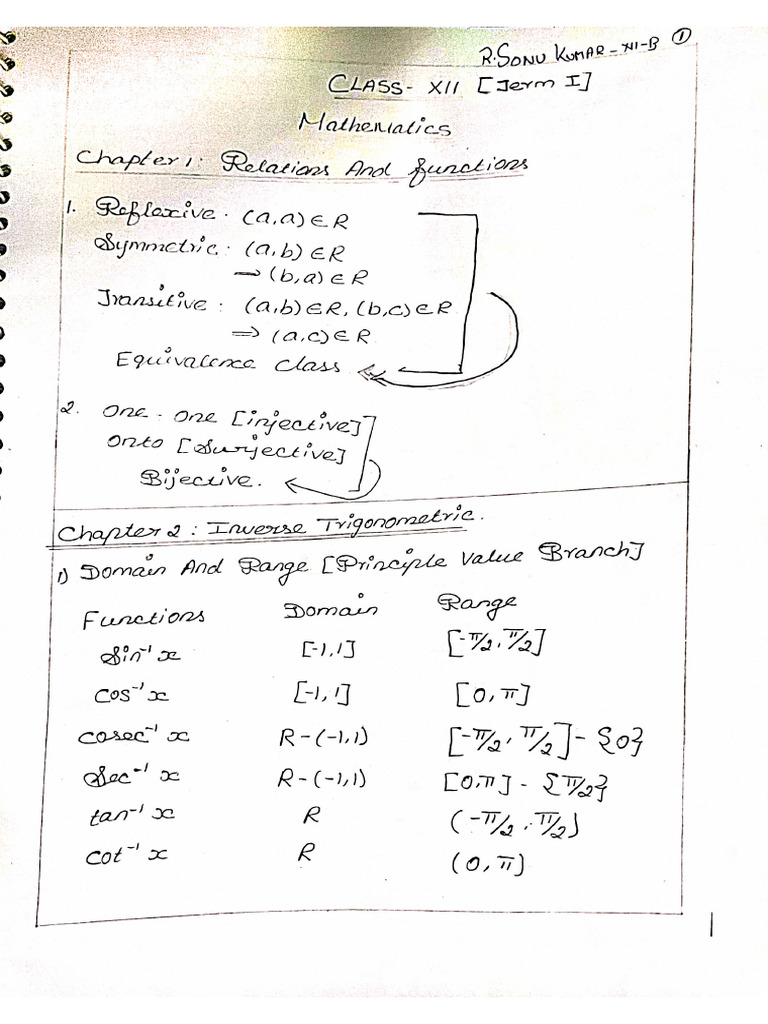 R.SONU KUMAR - XII-B ①
CLASS- XII [Term I]
Mathematics
Chapter 1: Relations And functions
1. Reflexive. (a,a) ∈ R
Symmetric: (a,b) ∈ R
→ (b,a) ∈ R
Transitive: (a,b) ∈ R, (b,c) ∈ R
⇒ (a,c) ∈ R
Equivalence class
2. One - One [injective]
Onto [Surjective]
Bijective.
Chapter 2: Inverse Trigonometric.
1) Domain And Range [Principle Value Branch]
Functions Domain Range
Sin⁻¹ x [-1,1] [-π/2, π/2]
cos⁻¹ x [-1,1] [0, π]
cosec⁻¹ x R-(-1,1) [-π/2, π/2] - {0}
Sec⁻¹ x R-(-1,1) [0,π] - {π/2}
tan⁻¹ x R (-π/2, π/2)
cot⁻¹ x R (0, π)